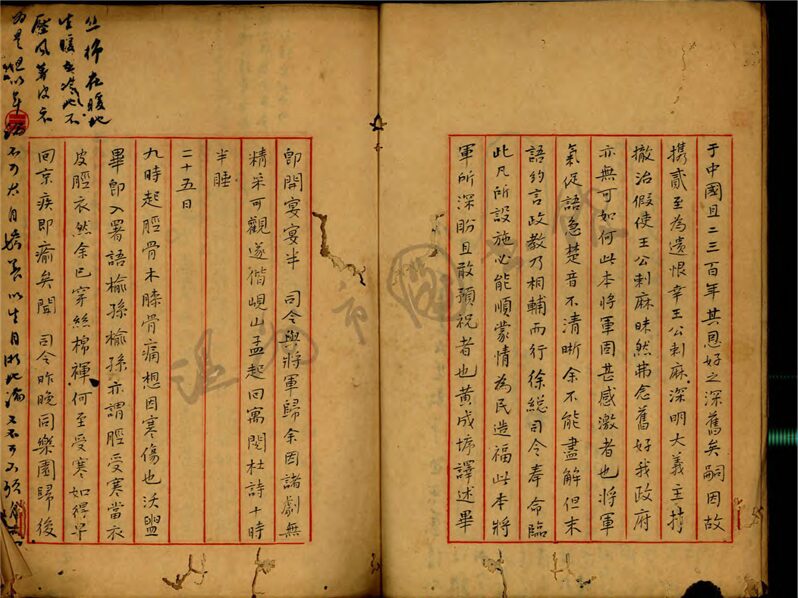 于中國且二三百年其恩好之深舊矣嗣因故
携貳至為遺恨幸王公剌麻深明大義主持
撤治假使王公剌麻昧然弗念舊好我政府
亦無可如何此本將軍固甚感激者也將軍
氣促語急楚音不清晰余不能盡解但末
語約言政教乃相輔而行徐總司令奉命臨
此凡所設施必能順蒙情為民造福此本將
軍所深盼且敢預祝者也黃成垿譯述畢
即開宴宴半司令與將軍歸余因諸劇無
精采可觀遂偕峴山孟起回寓閱杜詩十時
半睡
二十五日
九時起脛骨木膝骨痛想因寒傷也沃盥
畢即入署語榆孫榆孫亦謂脛受寒當衣
皮脛衣然余已穿絲棉褌何至受寒如得早
回京疾即瘉矣聞司令昨晚同樂園歸後
絲棉在暖地
生暖在冷地不
壓風著皮衣
為是